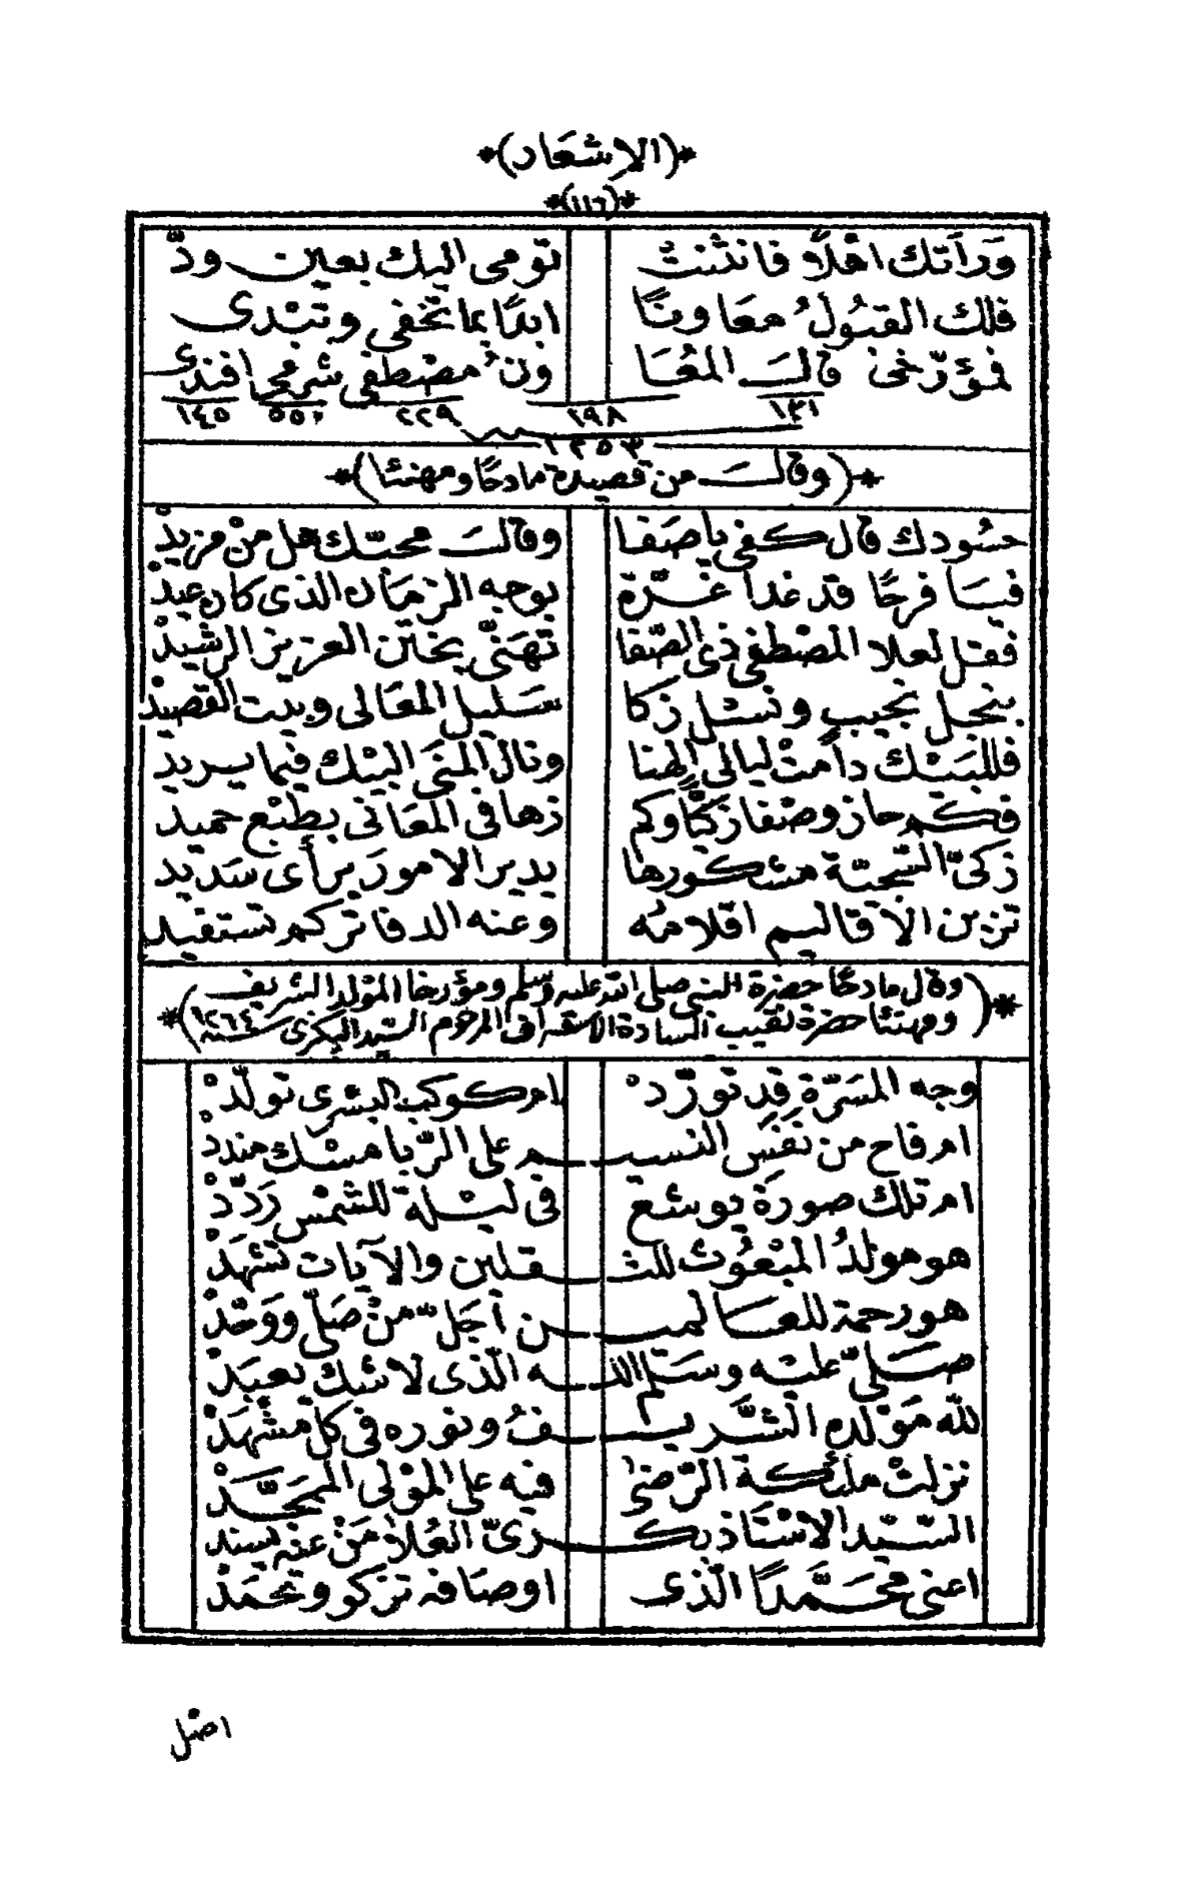 *(الاشعار)*
*(١١٦)*
وَرَأَتك اهْلًا فانثنتْ تومى اليك بعين ودّ
فلك القبُولُ معاونًا ابدًا بما تخفى وتبْدى
فمؤرّخى قالَ المعُا ونُ مصْطفى شرم محرا فندى
١٣١ ١٩٨ ٢٢٩ ٥٥٠ ١٤٥
١٢٥٣
*(وقالَ من قصيدة مادحًا ومهنئا)*
حسُودك قال كفى ياصَفا وقالَ محبّك هل منْ مزيدْ
فيَا فرحًا قد غدا غرّة بوجه الزمَان الذى كان عيدْ
فقل لعلا المصْطفى ذى الصّفا تَهَنّى بختن العزيز الرشيدْ
بنجل نجيب ونسْل زكا سَليل المعَالى وبيت القصيدْ
فللبَيْتك دامتْ ليالى الهنا ونال المنَى البيْتك فيما يريد
فكم حاز وصْفا زكيًّا وكم زها فى المعَانى بطبْع حميد
زكىّ السّجيّة مشكورها يدير الامورَ برأى سَديد
تزين الاقاليم اقلامُه وعنه الدفاتر كم تستفيد
*(وقال مادحًا حضرة النبى صلى الله عليه وسلم ومؤرخا المولد الشريف
ومهنئا حضرة نقيب السادة الاشراف المرحوم السّيد البكرى سنة ١٢٦٤)*
وجه المسَرّة قد تورّدْ ام كوكب البشرى تولّدْ
ام فاح من نفَس النسيم على الرّبا مسْك مندد
ام تلك صورَة يوشع فى ليْلة للشمْس رَدّدْ
هو مولدُ المبْعُوث للثقلين والآيات تشْهَدْ
هو رحمة للعالمين أجَلّ منْ صَلّى ووَحّدْ
صَلّى عليْه وسَلّم الله الّذى لاشك يعبَدْ
لله مَوْلده الشّريفُ ونوره فى كل مشْهَدْ
نزلتْ ملائكة الرّضىٰ فيه على المولى الممجَّدْ
السّيّد الاسْتَاذ بكرىّ العُلا مَنْ عنْه يسند
اعنى محَمَّدًا الّذى اوصَافه تزكو وتحمَدْ
اصْل